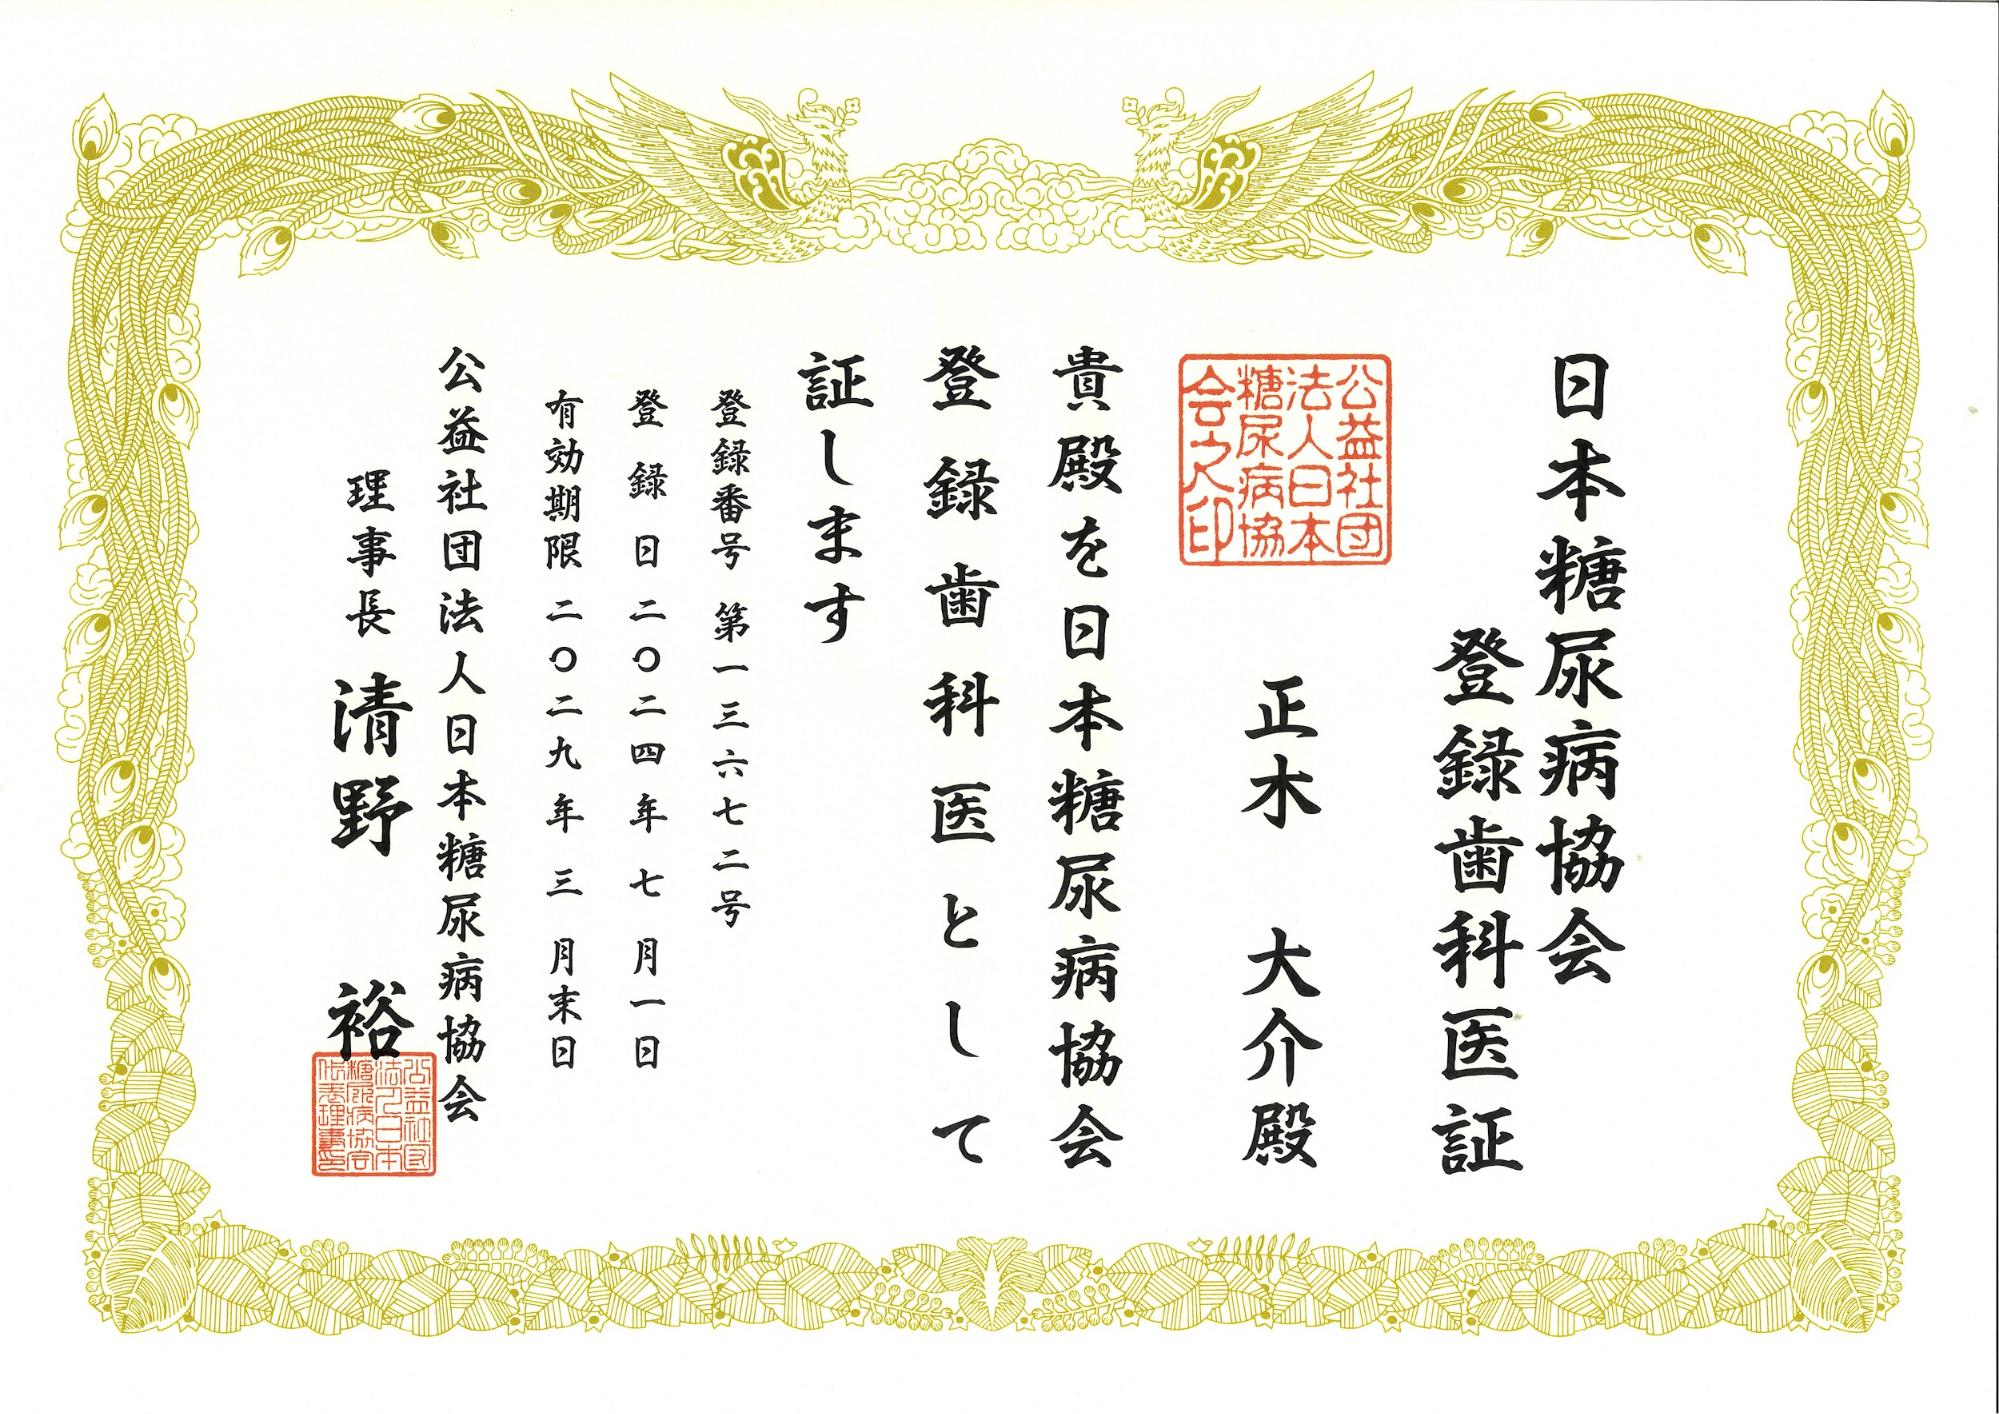 日本糖尿病協会
登録歯科医証
公益社団
法人日本
糖尿病協
会之印
正木 大介殿
貴殿を日本糖尿病協会
登録歯科医として
証します
登録番号 第一三六七二号
登録日 二〇二四年 七月一日
有効期限 二〇二九年 三月末日
公益社団法人日本糖尿病協会
理事長 清野 裕
公益社団
法人日本
糖尿病協会
代表理事印